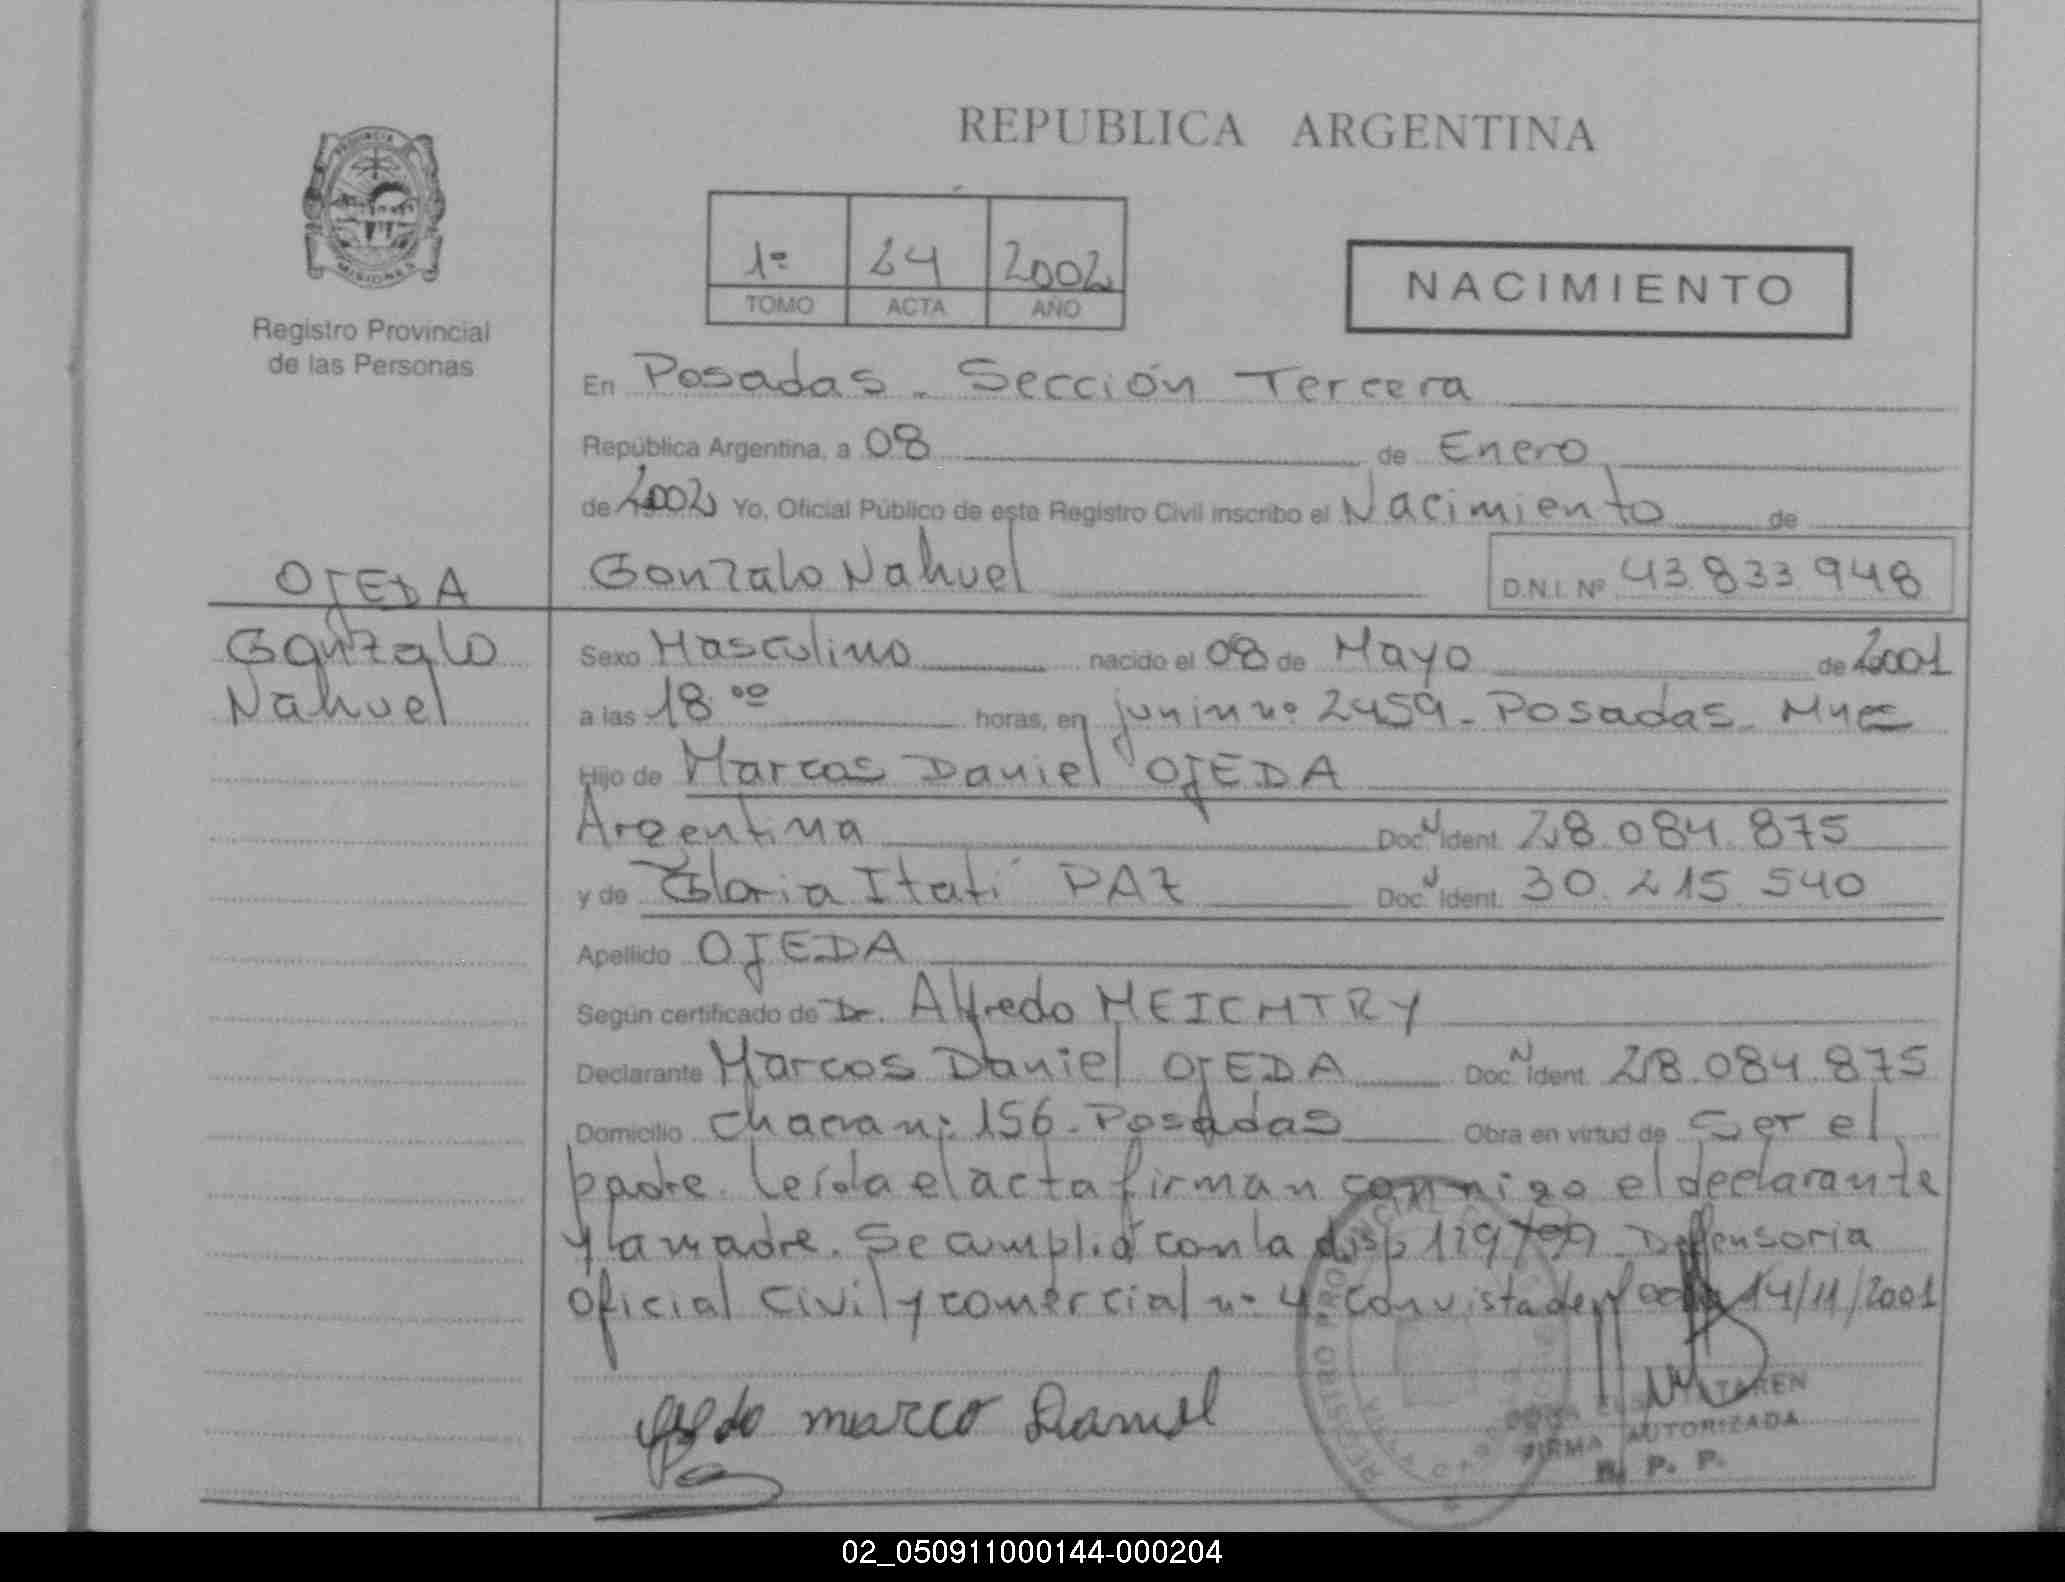 REPUBLICA ARGENTINA
PROVINCIA
MISIONES
Registro Provincial
de las Personas
1º 24 2002
TOMO ACTA AÑO
NACIMIENTO
En Posadas - Sección Tercera
República Argentina, a 08 de Enero
de 2002 Yo, Oficial Público de este Registro Civil inscribo el Nacimiento de
Gonzalo Nahuel D.N.I. Nº 43.833.948
OJEDA
Gonzalo
Nahuel
Sexo Masculino nacido el 08 de Mayo de 2001
a las 18 ºº horas, en junin nº 2459 - Posadas - Mnes
Hijo de Marcos Daniel OJEDA
Argentina Doc. N Ident. 28.084.875
y de Gloria Itatí PAZ Doc. N Ident. 30.215.540
Apellido OJEDA
Según certificado de Dr. Alfredo MEICHTRY
Declarante Marcos Daniel OJEDA Doc. N Ident. 28.084.875
Domicilio chacra nº 156 - Posadas Obra en virtud de Ser el
padre. Leída el acta firman conmigo el declarante
y la madre. Se cumplió con la disp 119/99 Deffensoria
Oficial Civil y comercial nº 4 con vista de 14/11/2001
marco Daniel
FIRMA AUTORIZADA
R. P. P.
02_050911000144-000204